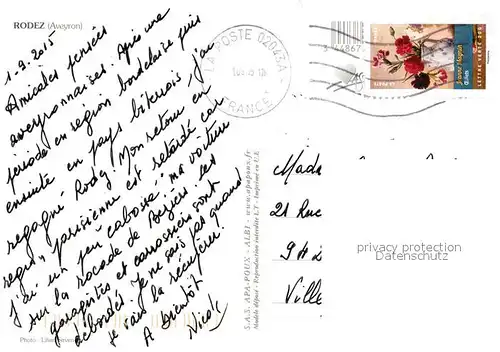 RODEZ (Aveyron)
1-9-2015
Amicales pensées
aveyronnaises. Après une
période en région bordelaise puis
ensuite en pays biterrois, j'ai
regagné Rodez. Mon retour en
région parisienne est retardé car
j'ai un peu "cabossé" ma voiture
sur la rocade de Béziers. Les
garagistes et carrossiers sont
débordés. Je ne sais pas quand
je vais la récupérer.
A bientôt
Photo :
S.A.S. APA-POUX - ALBI - www.apapoux.fr
Modèle déposé - Reproduction interdite LT - Imprimé en U E
LA POSTE 02043A
FRANCE
LETTRE VERTE 20g
Mada
21 Rue
Ville
privacy protection
Datenschutz